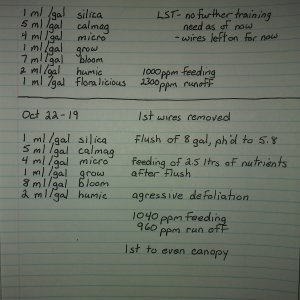 1 ml/gal silica     LST - no further training
5 ml/gal calmag     need as of now
4 ml/gal micro     - wires left on for now
1 ml/gal grow
7 ml/gal bloom
2 ml/gal humic     1000ppm feeding
1 ml/gal floralicious     2300ppm runoff
Oct 22-19     1st wires removed
1 ml/gal silica     flush of 8 gal, ph'd to 5.8
5 ml/gal calmag
4 ml/gal micro     feeding of 2.5 ltrs of nutrients
1 ml/gal grow     after flush
8 ml/gal bloom
2 ml/gal humic     agressive defoliation
1040 ppm feeding
960 ppm run off
1st to even canopy